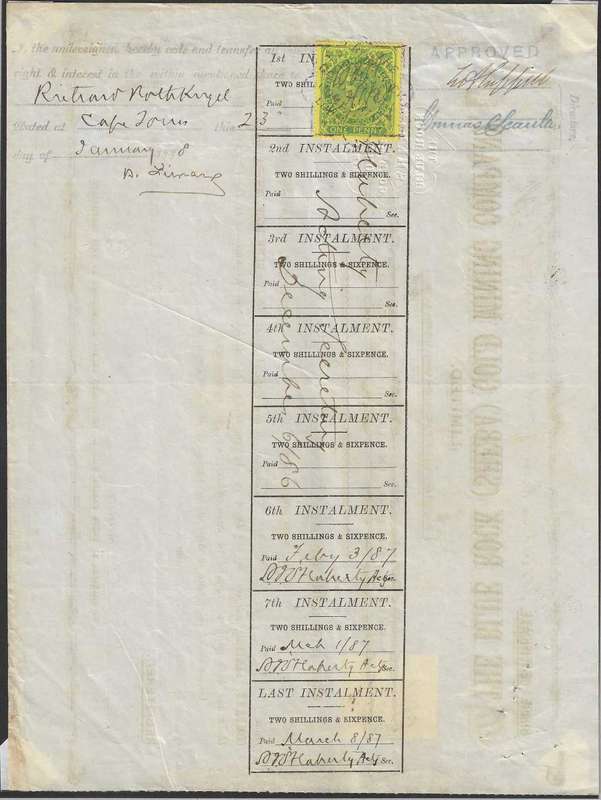 I, the undersigned, hereby cede and transfer all
right & interest in the within mentioned share to
Richard Rothkugel
Dated at Cape Town this 23
day of January 8
1st INSTALMENT.
TWO SHILLINGS
Paid
ONE PENNY
2nd INSTALMENT.
TWO SHILLINGS & SIXPENCE.
Paid
Sec.
3rd INSTALMENT.
TWO SHILLINGS & SIXPENCE.
Paid
Sec.
4th INSTALMENT.
TWO SHILLINGS & SIXPENCE.
Paid
Sec.
5th INSTALMENT.
TWO SHILLINGS & SIXPENCE.
Paid
Sec.
Flaherty
Acting Secretary
December 9/86
6th INSTALMENT.
TWO SHILLINGS & SIXPENCE.
Paid Feby 3/87
Flaherty Actg Sec.
7th INSTALMENT.
TWO SHILLINGS & SIXPENCE.
Paid Mch 1/87
Flaherty Actg Sec.
LAST INSTALMENT.
TWO SHILLINGS & SIXPENCE.
Paid March 8/87
Flaherty Actg Sec.
APPROVED
Directors.
THE BLUE ROCK (SHEBA) GOLD MINING COMPANY
LIMITED